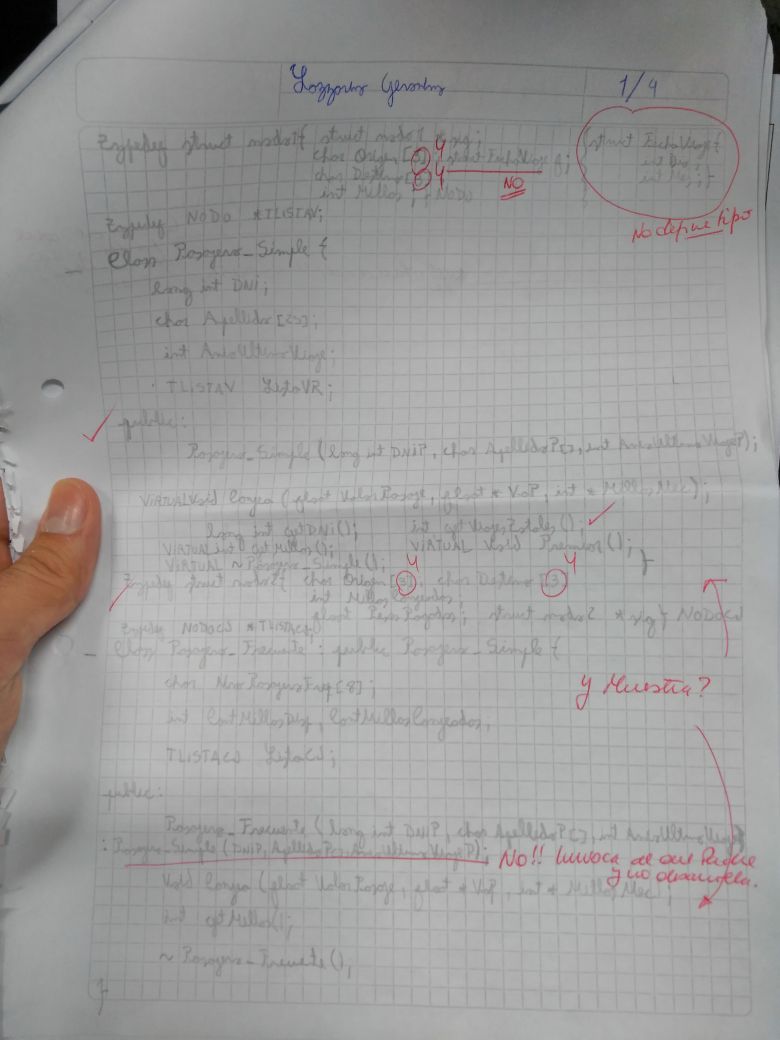 1/4
typedef struct nodo1{ struct nodo1 * sig; struct FechaViaje{
char Origen [3] 4 struct FechaViaje f; int Dia;
char Destino [3] 4 int Mes; }
int Millas; } NODO NO
No define tipo
typedef NODO *TLISTAV;
Class Pasajero_Simple {
long int DNI;
char Apellido [25];
int AnioUltimoViaje;
TLISTAV ListaVR;
public:
Pasajero_Simple (long int DNIP, char ApellidoP[], int AnioUltimoViajeP);
VIRTUAL Void Canjea (float ValorPasaje, float * VaP, int *
long int getDNI(); int getViajesTotales();
VIRTUAL int getMillas(); VIRTUAL Void Premios();
VIRTUAL ~Pasajero_Simple(); }
typedef struct nodo2{ char Origen [3] 4, char Destino [3] 4
int MillasCanjeadas;
float PesosPagados; struct nodo2 *sig} NODOCJ
typedef NODOCJ *TLISTACJ
Class Pasajero_Frecuente : public Pasajero_Simple {
char NroPasajeroFreq [8];
y Muestra?
int CantMillasDisp, CantMillasCanjeadas;
TLISTACJ ListaCJ;
public:
Pasajero_Frecuente (long int DNIP, char ApellidoP[], int AnioUltimoViajeP)
: Pasajero_Simple (DNIP, ApellidoP, AnioUltimoViajeP); NO!! Invoca al del Padre
y no
Void Canjea (float ValorPasaje, float * VaP, int * MillasNec);
int getMillas();
~ Pasajero_Frecuente();
}